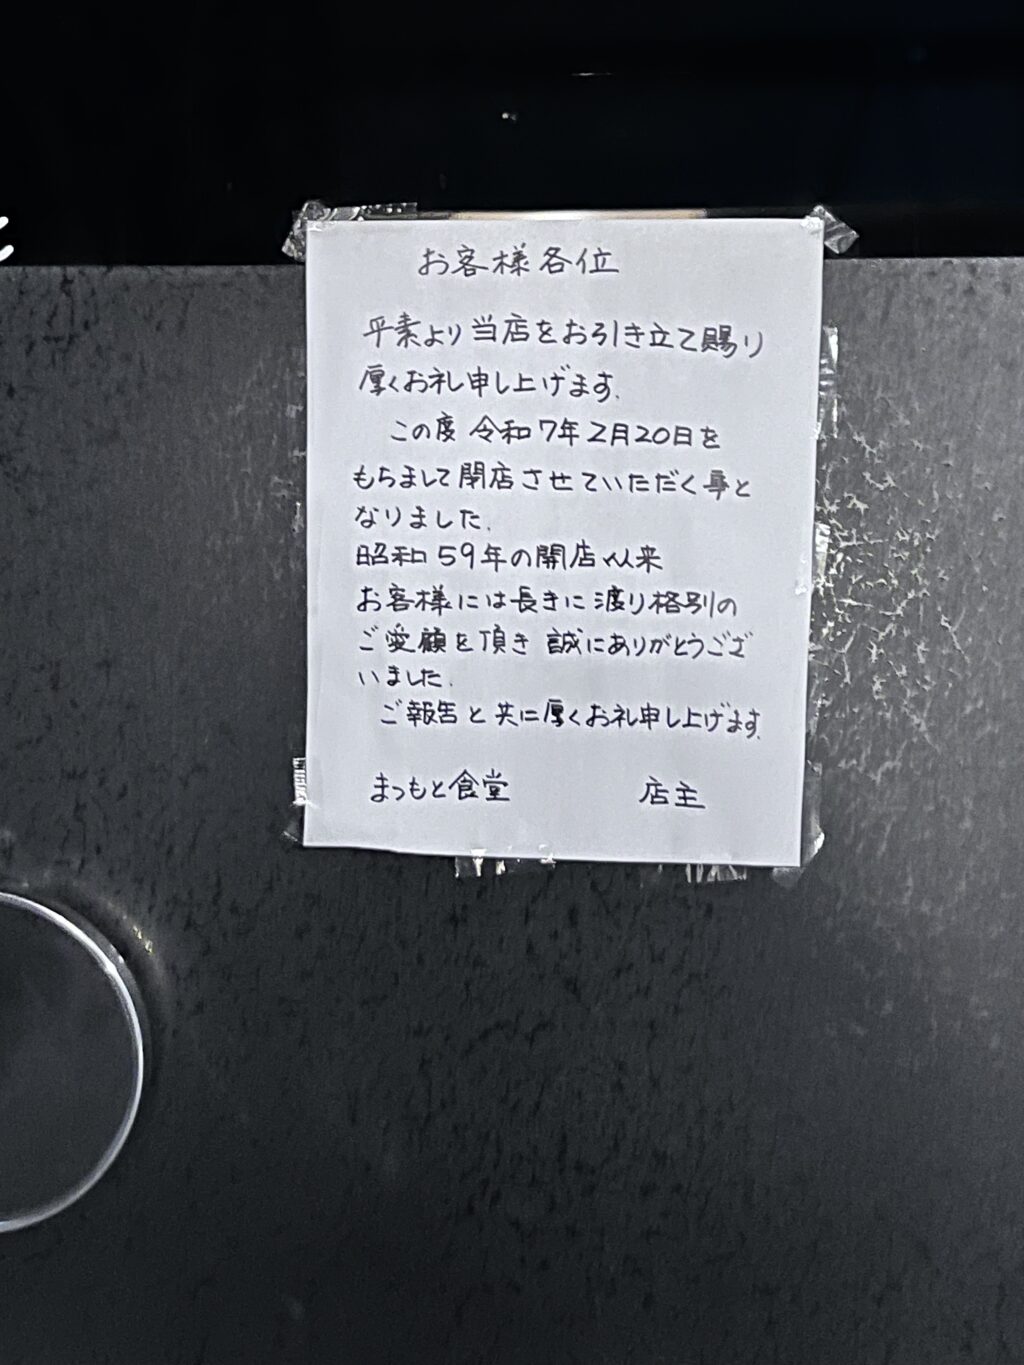 お客様各位
平素より当店をお引き立て賜り
厚くお礼申し上げます。
この度 令和7年2月20日を
もちまして閉店させていただく事と
なりました。
昭和59年の開店以来
お客様には長きに渡り格別の
ご愛顧を頂き 誠にありがとうござ
いました。
ご報告と共に厚くお礼申し上げます。
まつもと食堂 店主